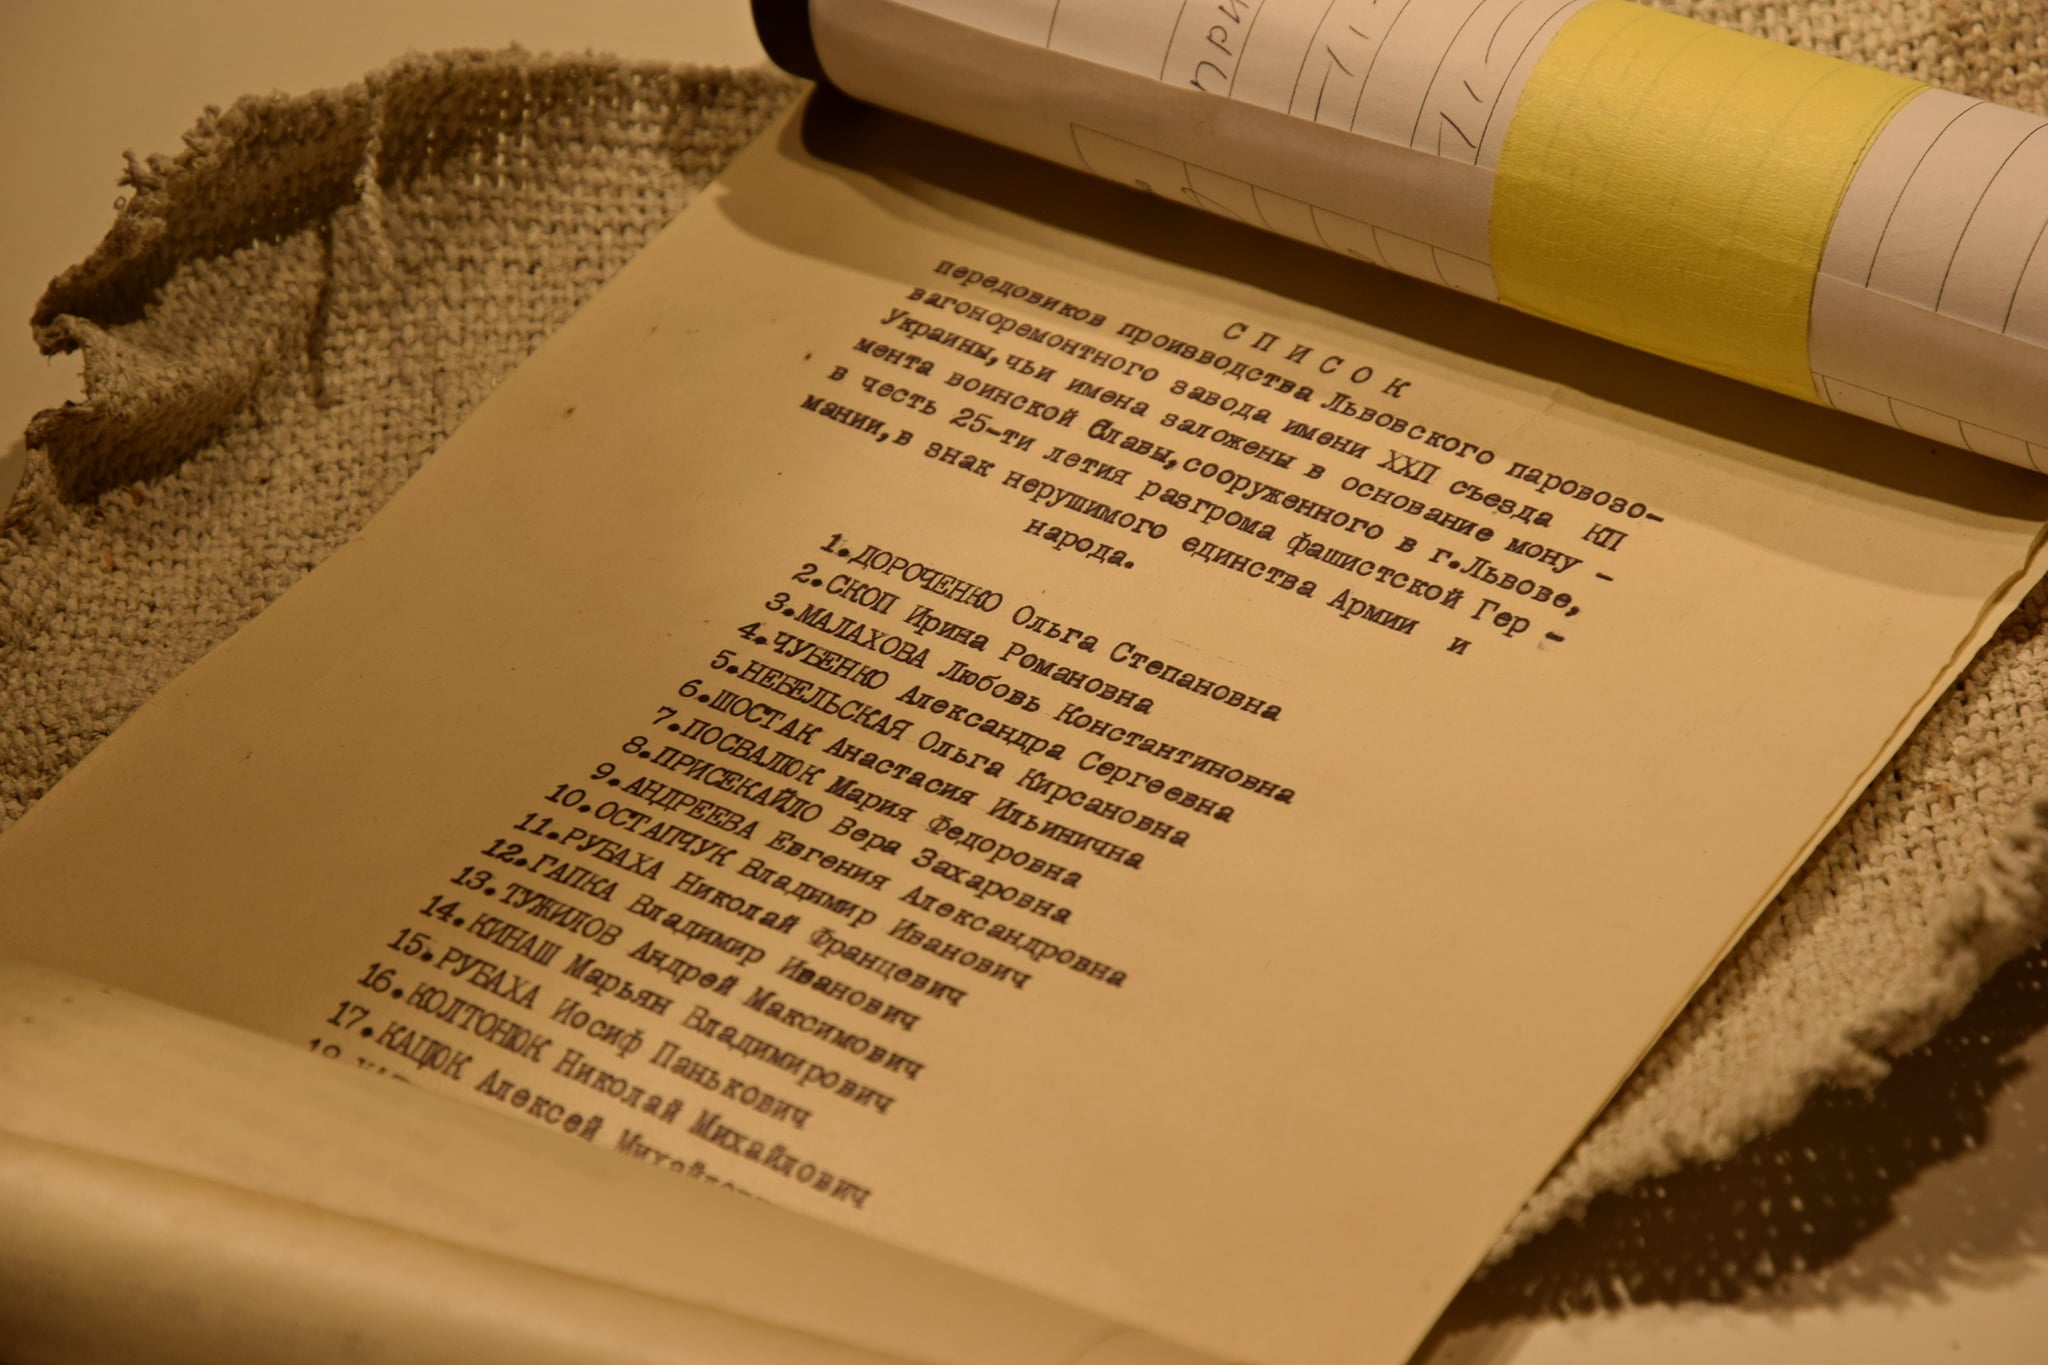 СПИСОК
передовиков производства Львовского паровозо-
вагоноремонтного завода имени ХХП съезда КП
Украины, чьи имена заложены в основание мону -
мента воинской Славы, сооруженного в г.Львове,
в честь 25-ти летия разгрома фашистской Гер -
мании, в знак нерушимого единства Армии и
народа.
1. ДОРОЧЕНКО Ольга Степановна
2. СКОП Ирина Романовна
3. МАЛАХОВА Любовь Константиновна
4. ЧУБЕНКО Александра Сергеевна
5. НЕБЕЛЬСКАЯ Ольга Кирсановна
6. ШОСТАК Анастасия Ильинична
7. ПОСВАЛЮК Мария Федоровна
8. ПРИСЕКАЙЛО Вера Захаровна
9. АНДРЕЕВА Евгения Александровна
10. ОСТАПЧУК Владимир Иванович
11. РУБАХА Николай Францевич
12. ГАПКА Владимир Иванович
13. ТУЖИЛОВ Андрей Максимович
14. КИНАШ Марьян Владимирович
15. РУБАХА Иосиф Панькович
16. КОЛТОНЮК Николай Михайлович
17. КАЦЮК Алексей